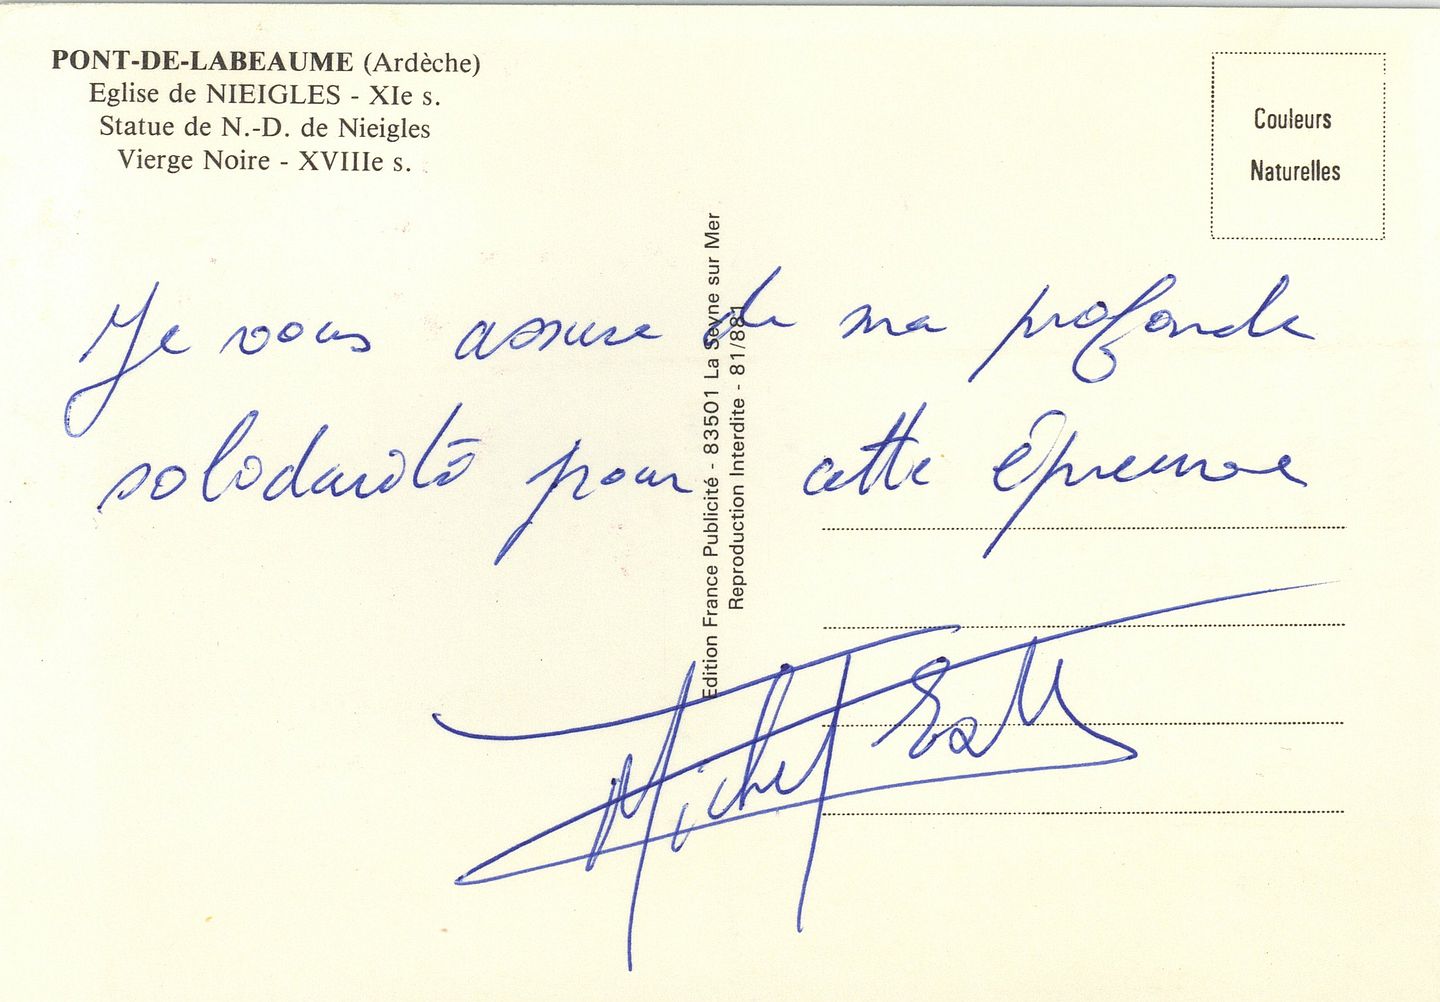 PONT-DE-LABEAUME (Ardèche)
Eglise de NIEIGLES - XIe s.
Statue de N.-D. de Nieigles
Vierge Noire - XVIIIe s.
Couleurs
Naturelles
Edition France Publicité - 83501 La Seyne sur Mer
Reproduction Interdite - 81/881
Je vous assure de ma profonde
solidarité pour cette épreuve
Michel